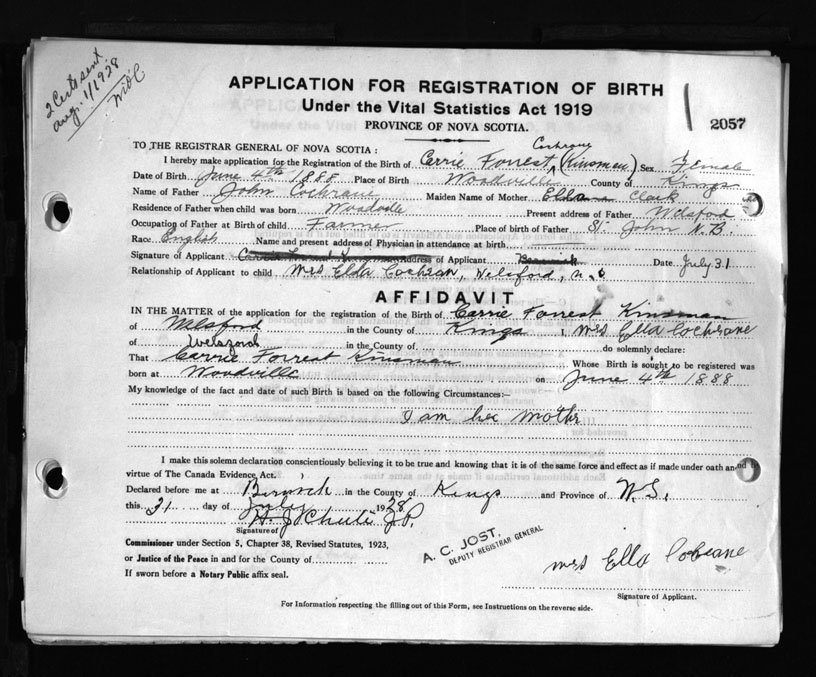 2 Certs sent
Aug. 1/1928
APPLICATION FOR REGISTRATION OF BIRTH
Under the Vital Statistics Act 1919
PROVINCE OF NOVA SCOTIA.
2057
TO THE REGISTRAR GENERAL OF NOVA SCOTIA :
Cochrane
I hereby make application for the Registration of the Birth of Carrie Forrest (Kinsman) Sex Female
Date of Birth June 4th 1888 Place of Birth Woodville County of Kings
Name of Father John Cochrane Maiden Name of Mother Clark
Residence of Father when child was born Woodville Present address of Father Welsford
Occupation of Father at Birth of child Farmer Place of birth of Father St. John N.B.
Race English Name and present address of Physician in attendance at birth
Signature of Applicant Address of Applicant Berwick Date July 31
Relationship of Applicant to child Mrs Ella Cochran, Welsford, N.S
AFFIDAVIT
IN THE MATTER of the application for the registration of the Birth of Carrie Forrest Kinsman
of Welsford in the County of Kings I, Mrs Ella Cochrane
of Welsford in the County of do solemnly declare:
That Carrie Forrest Kinsman Whose Birth is sought to be registered was
born at Woodville on June 4th 1888
My knowledge of the fact and date of such Birth is based on the following Circumstances:—
I am her mother
I make this solemn declaration conscientiously believing it to be true and knowing that it is of the same force and effect as if made under oath and by
virtue of The Canada Evidence Act.
Declared before me at Berwick in the County of Kings and Province of N.S.
this 31 day of July 1928
J.P.
Signature of
Commissioner under Section 5, Chapter 38, Revised Statutes, 1923,
or Justice of the Peace in and for the County of
If sworn before a Notary Public affix seal.
A. C. JOST,
DEPUTY REGISTRAR GENERAL
Mrs Ella Cochrane
Signature of Applicant.
For Information respecting the filling out of this Form, see Instructions on the reverse side.